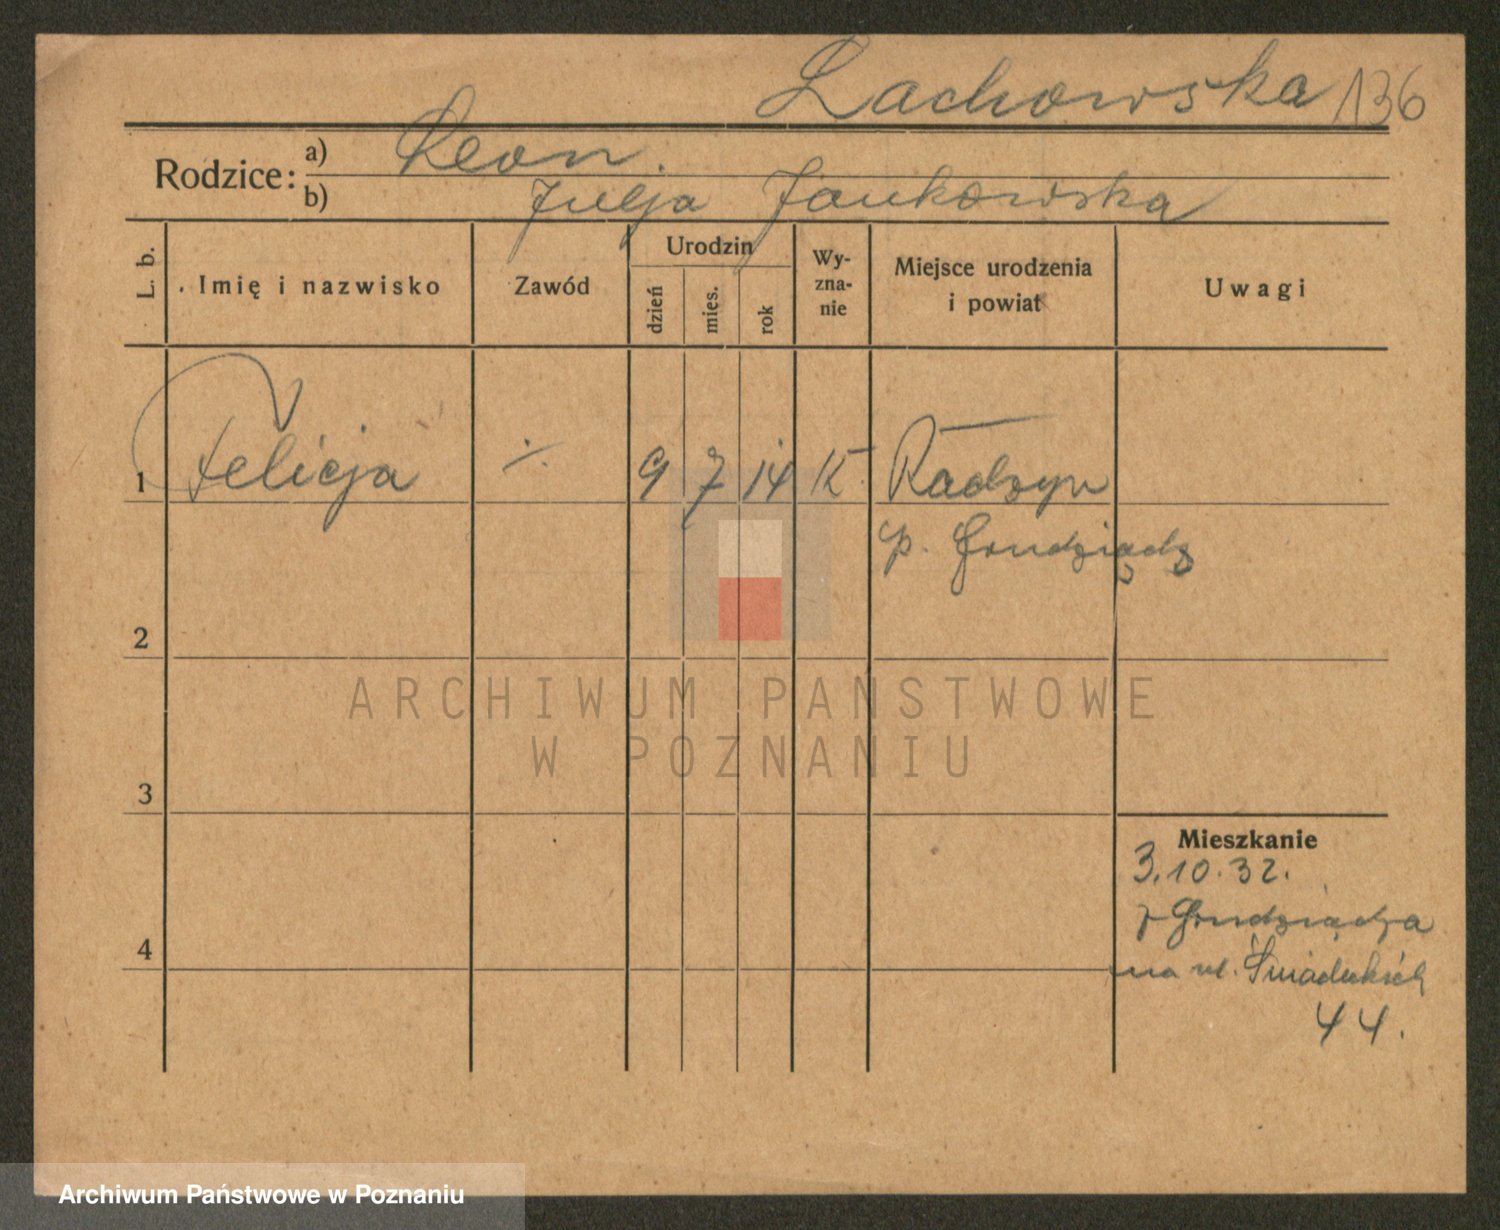 Lachowska 136
Rodzice: a) Leon.
b) Julja Jankowska
L. b.
Imię i nazwisko
Zawód
Urodzin
dzień
mies.
rok
Wy-
zna-
nie
Miejsce urodzenia
i powiat
Uwagi
1 Felicja ·/. 9 7 14 K. Radzyn
p. Grudziądz
2
3
4
Mieszkanie
3.10.32.
z Grudziądza
na ul.
44.
ARCHIWUM PAŃSTWOWE
W POZNANIU
Archiwum Państwowe w Poznaniu